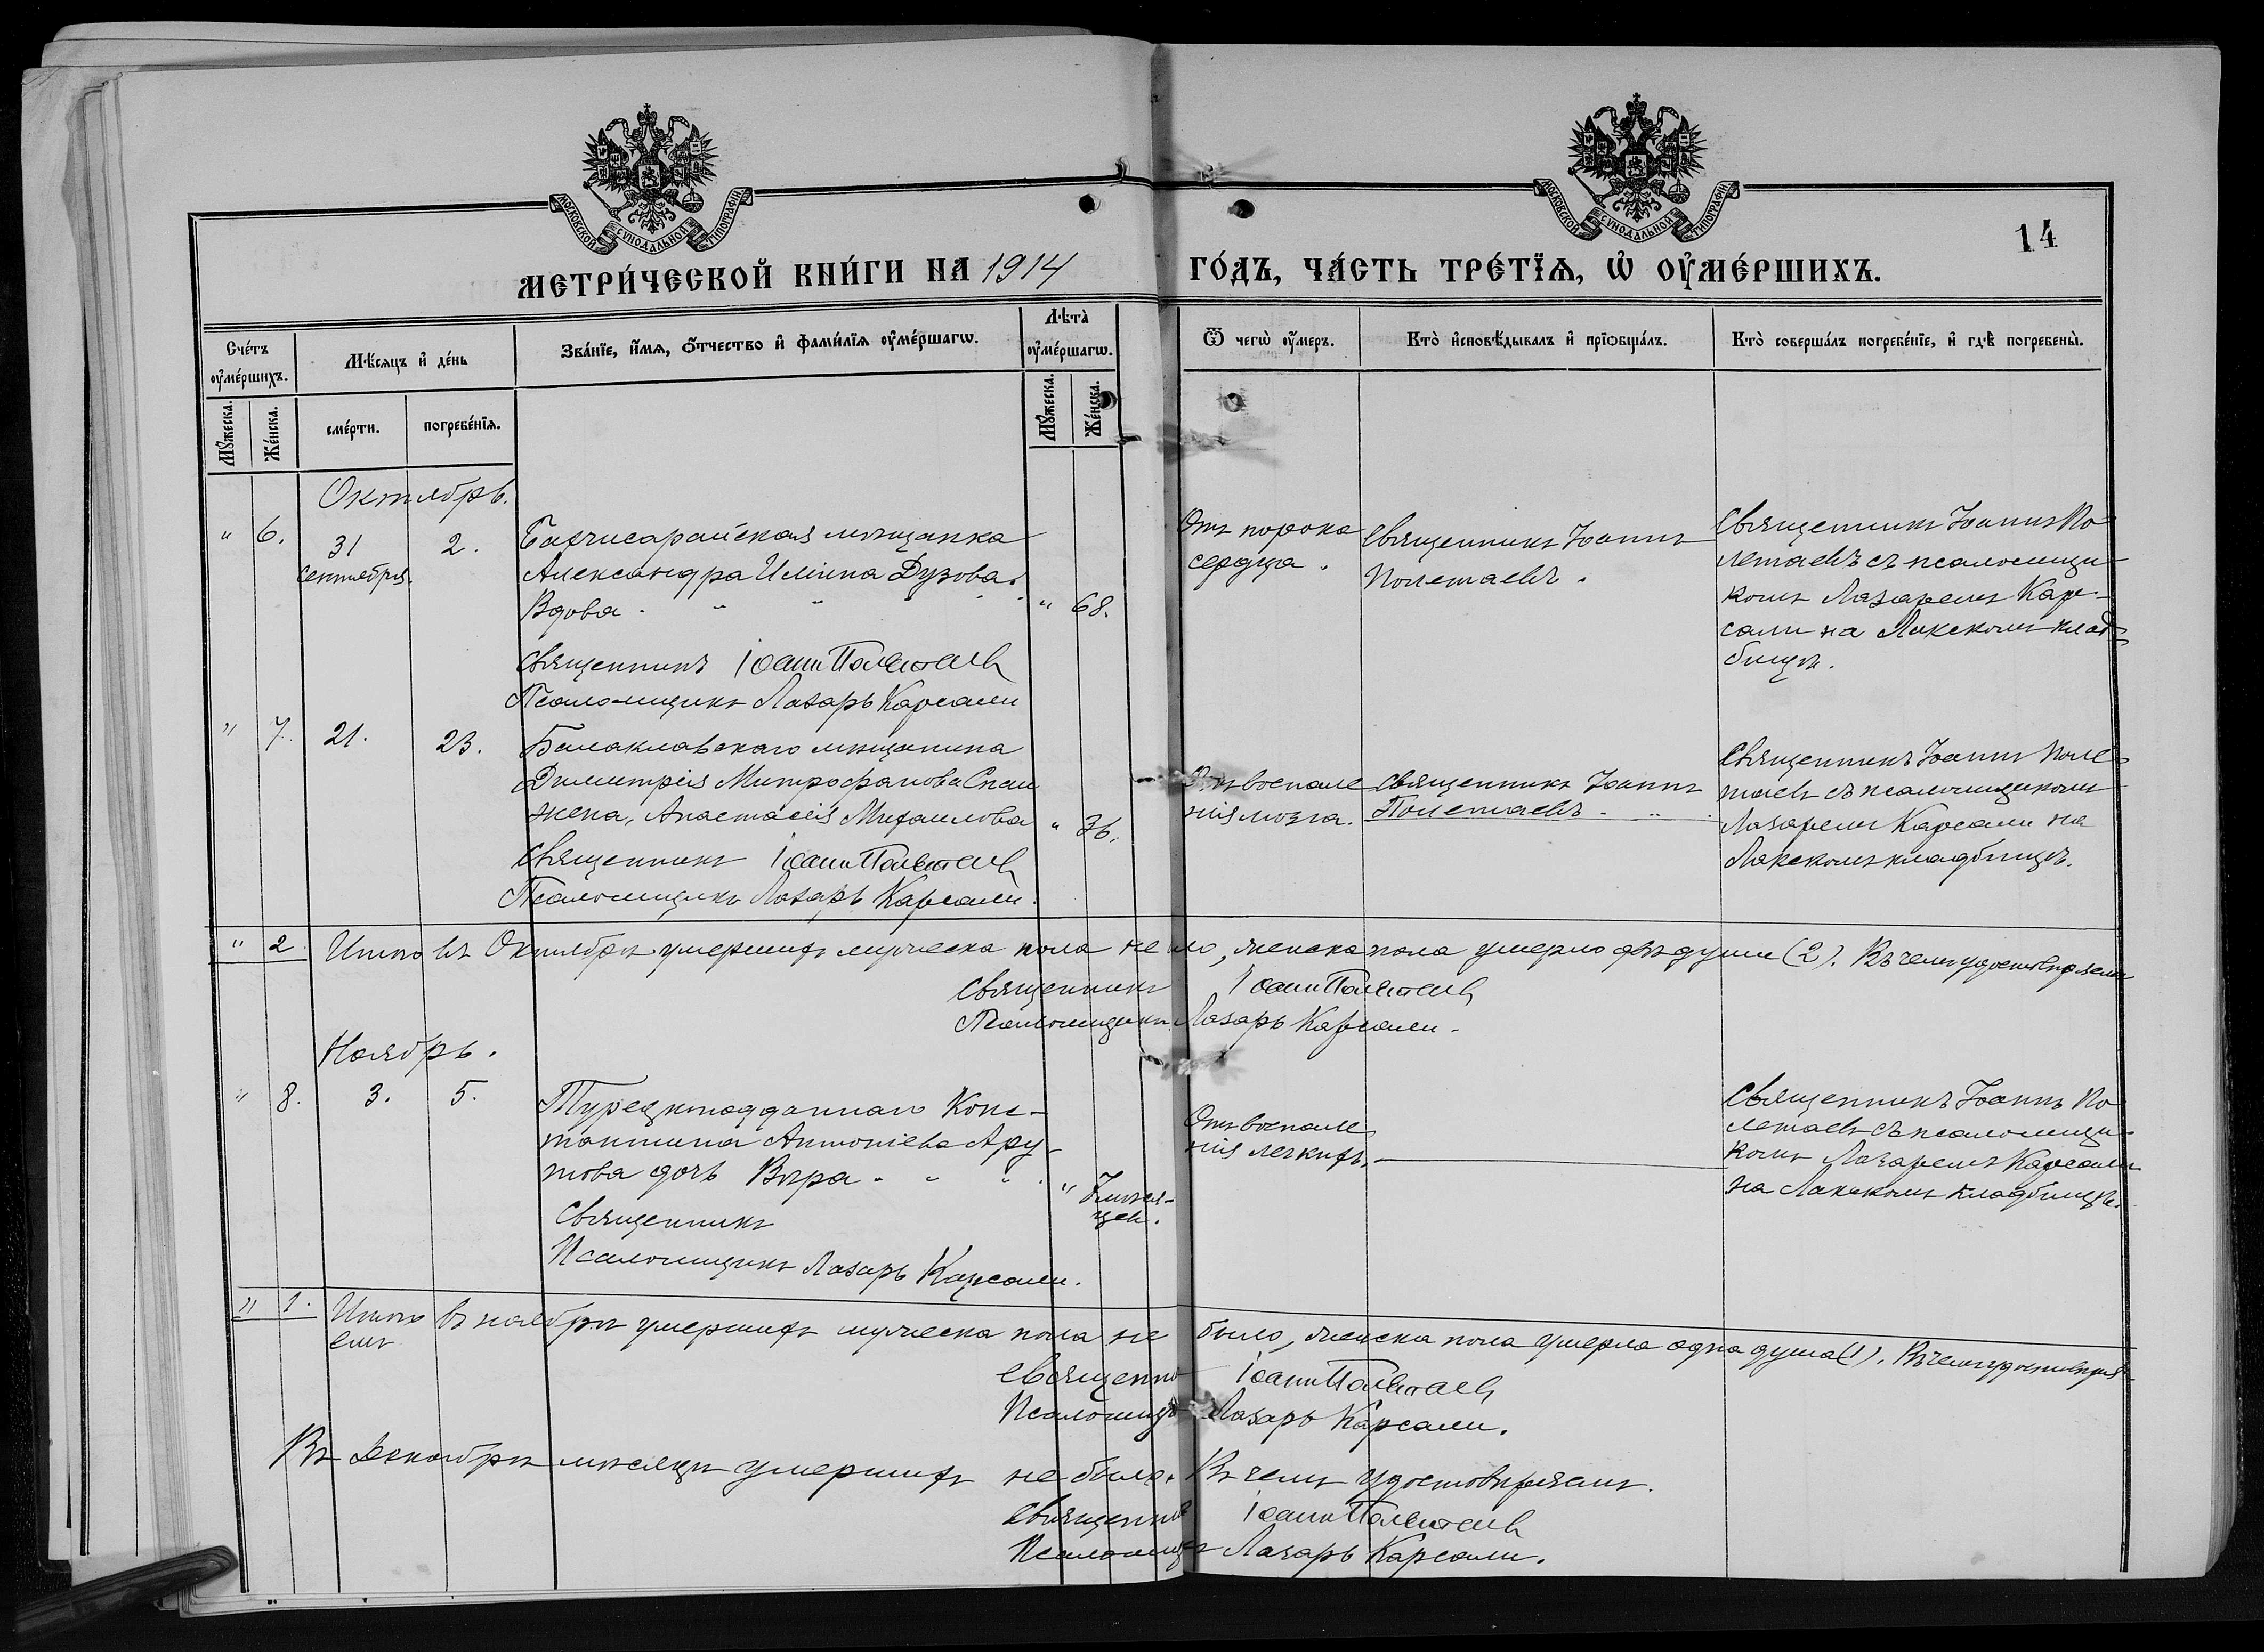 МОСКОВСКОЙ СѴНОДАЛЬНОЙ ТИПОГРАФІИ
МОСКОВСКОЙ СѴНОДАЛЬНОЙ ТИПОГРАФІИ
14
МЕТРИ́ЧЕСКОЙ КНИ́ГИ НА 1914 ГО́ДЪ, ЧА́СТЬ ТРЕ́ТІѦ, Ѡ҆ ОУ҆МЕ́РШИХЪ.
Сче́тъ оу҆ме́ршихъ.
Мꙋ́жеска.
Же́нска.
Мѣ́сяцъ и҆ де́нь
сме́рти.
погребе́нїя.
Зва́нїе, и҆́мя, о҆́тчество и҆ фами́лїя оу҆ме́ршагѡ.
Лѣта̀ оу҆ме́ршагѡ.
Мꙋ́жеска.
Же́нска.
Ѿ чегѡ̀ оу҆́меръ.
Кто̀ и҆сповѣ́дывалъ и҆ прїѡбща́лъ.
Кто̀ соверша́лъ погребе́нїе, и҆ гдѣ̀ погребены̀.
Октябрь.
" 6. 31 сентября. 2.
Бахчисарайская мѣщанка
Александра Иліина Дузова.
Вдова. " 68.
Отъ порока
сердца.
Священникъ Іоаннъ
Полетаевъ.
Священникъ Іоаннъ По
летаевъ съ псаломщи-
комъ Лазаремъ Кар-
сали на Лакскомъ клад-
бищѣ.
Священникъ Іоаннъ Полетаевъ
Псаломщикъ Лазарь Карсали
" 7. 21. 23.
Балаклавскаго мѣщанина
Димитрія Митрофанова Спаи
жена, Анастасія Михаилова " 36.
Отъ воспале
нія мозга.
Священникъ Іоаннъ
Полетаевъ.
Священникъ Іоаннъ Поле-
таевъ съ псаломщикомъ
Лазаремъ Карсали на
Лакскомъ кладбищѣ.
Священникъ Іоаннъ Полетаевъ
Псаломщикъ Лазарь Карсали.
" 2 Итого въ Октябрѣ умершихъ мужеска пола не было, женска пола умерло двѣ души (2). Въ чемъ удостовѣряемъ
Священникъ Іоаннъ Полетаевъ
Псаломщикъ Лазарь Карсали.
Ноябрь.
" 8. 3. 5.
Турецкоподданнаго Конс-
тантина Антоніева Ару-
това дочь Вѣра. "
Отъ воспале
нія легкихъ.
Священникъ Іоаннъ По
летаевъ съ псаломщи-
комъ Лазаремъ Карсали
на Лакскомъ кладбищѣ.
Священникъ
Псаломщикъ Лазарь Карсали.
" 1. Итого въ ноябрѣ умершихъ мужеска пола не было, женска пола умерла одна душа (1). Въ чемъ удостовѣря-
емъ
Священно Іоаннъ Полетаевъ
Псаломщ Лазарь Карсали.
Въ Декабрѣ мѣсяцѣ умершихъ не было. Въ чемъ удостовѣряемъ.
Священникъ Іоаннъ Полетаевъ
Псаломщ Лазарь Карсали.